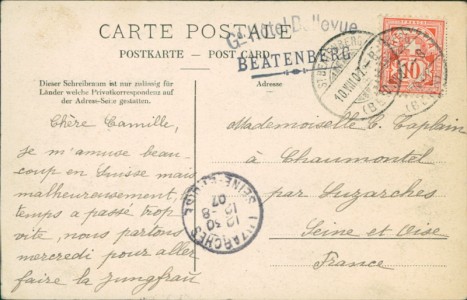 CARTE POSTALE
POSTKARTE - POST CARD
Gd Hotel Bellevue
BEATENBERG
Dieser Schreibraum ist nur zulässig für
Länder welche Privatkorrespondenz auf
der Adress-Seite gestatten.
Adresse
10.VIII.07.
10
Chère Camille,
je m'amuse beau-
coup en Suisse mais
malheureusement, le
temps a passé trop
vite, nous partons
mercredi pour aller
faire la Jungfrau
LUZARCHES
SEINE-ET-OISE
12 30
15-8
07
Mademoiselle C. Taplain
à Chaumontel
par Luzarches
Seine et Oise
France